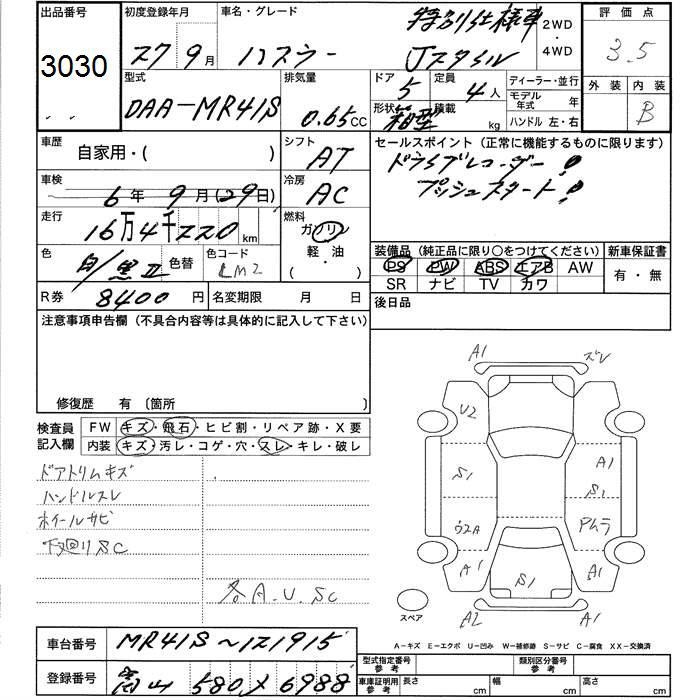 出品番号
3030
初度登録年月
27 9月
車名・グレード
ハスラー
特別仕様車
Jスタイル
2WD
・
4WD
評価点
3.5
外装 内装
B
型式
DAA-MR41S
排気量
0.65CC
ドア
5
定員
4人
形状
箱型
積載
kg
ディーラー・並行
モデル年式 年
ハンドル 左・右
車歴
自家用・( )
シフト
AT
セールスポイント (正常に機能するものに限ります)
ドライブレコーダー!
プッシュスタート!
車検
6年 9月(29日)
冷房
AC
走行
16万4千220km
燃料
ガソリン
軽・油
( ・ )
装備品 (純正品に限り○をつけてください)
新車保証書
有・無
PS PW ABS エアB AW
SR ナビ TV カワ
色
白/黒Ⅱ
色替
色コード
R券
8400円
名変期限 月 日
後日品
注意事項申告欄 (不具合内容等は具体的に記入して下さい)
修復歴 有 〔箇所 〕
検査員
記入欄
FW キズ・飛石・ヒビ割・リペア跡・X要
内装 キズ・汚レ・コゲ・穴・スレ・キレ・破レ
ドアトリムキズ
ハンドルスレ
ホイールサビ
下廻りSC
各A.U.SC
A1
ズレ
U2
A1
S1
S1
ウスA
A1
A1
S1
A2
A1
スペア
A-キズ E-エクボ U-凹み W-補修跡 S-サビ C-腐食 XX-交換済
車台番号
MR41S~121915
登録番号
富山 580 メ 6988
型式指定番号
参考
類別区分番号
参考
車庫証明用
参考
長さ cm
幅 cm
高さ cm